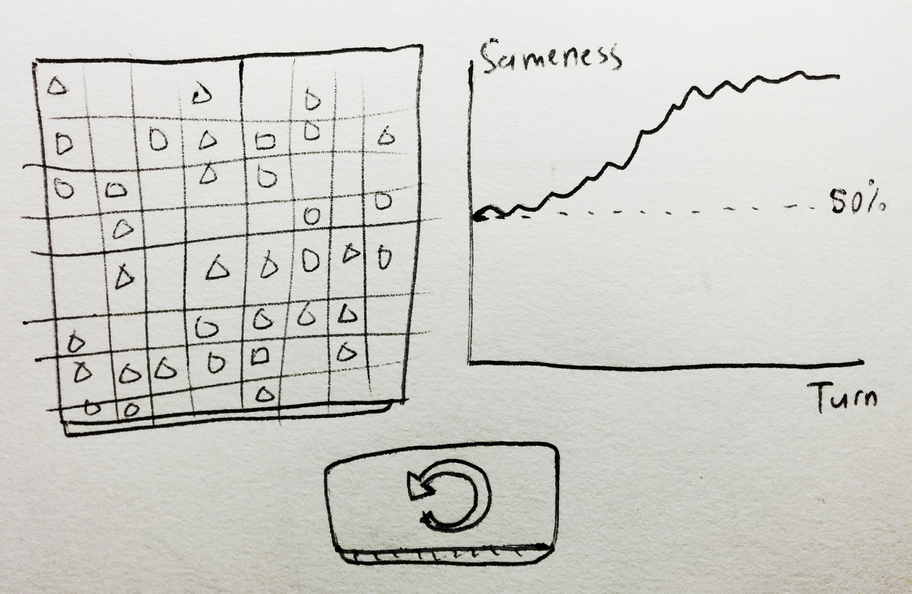 Sameness
50%
Turn